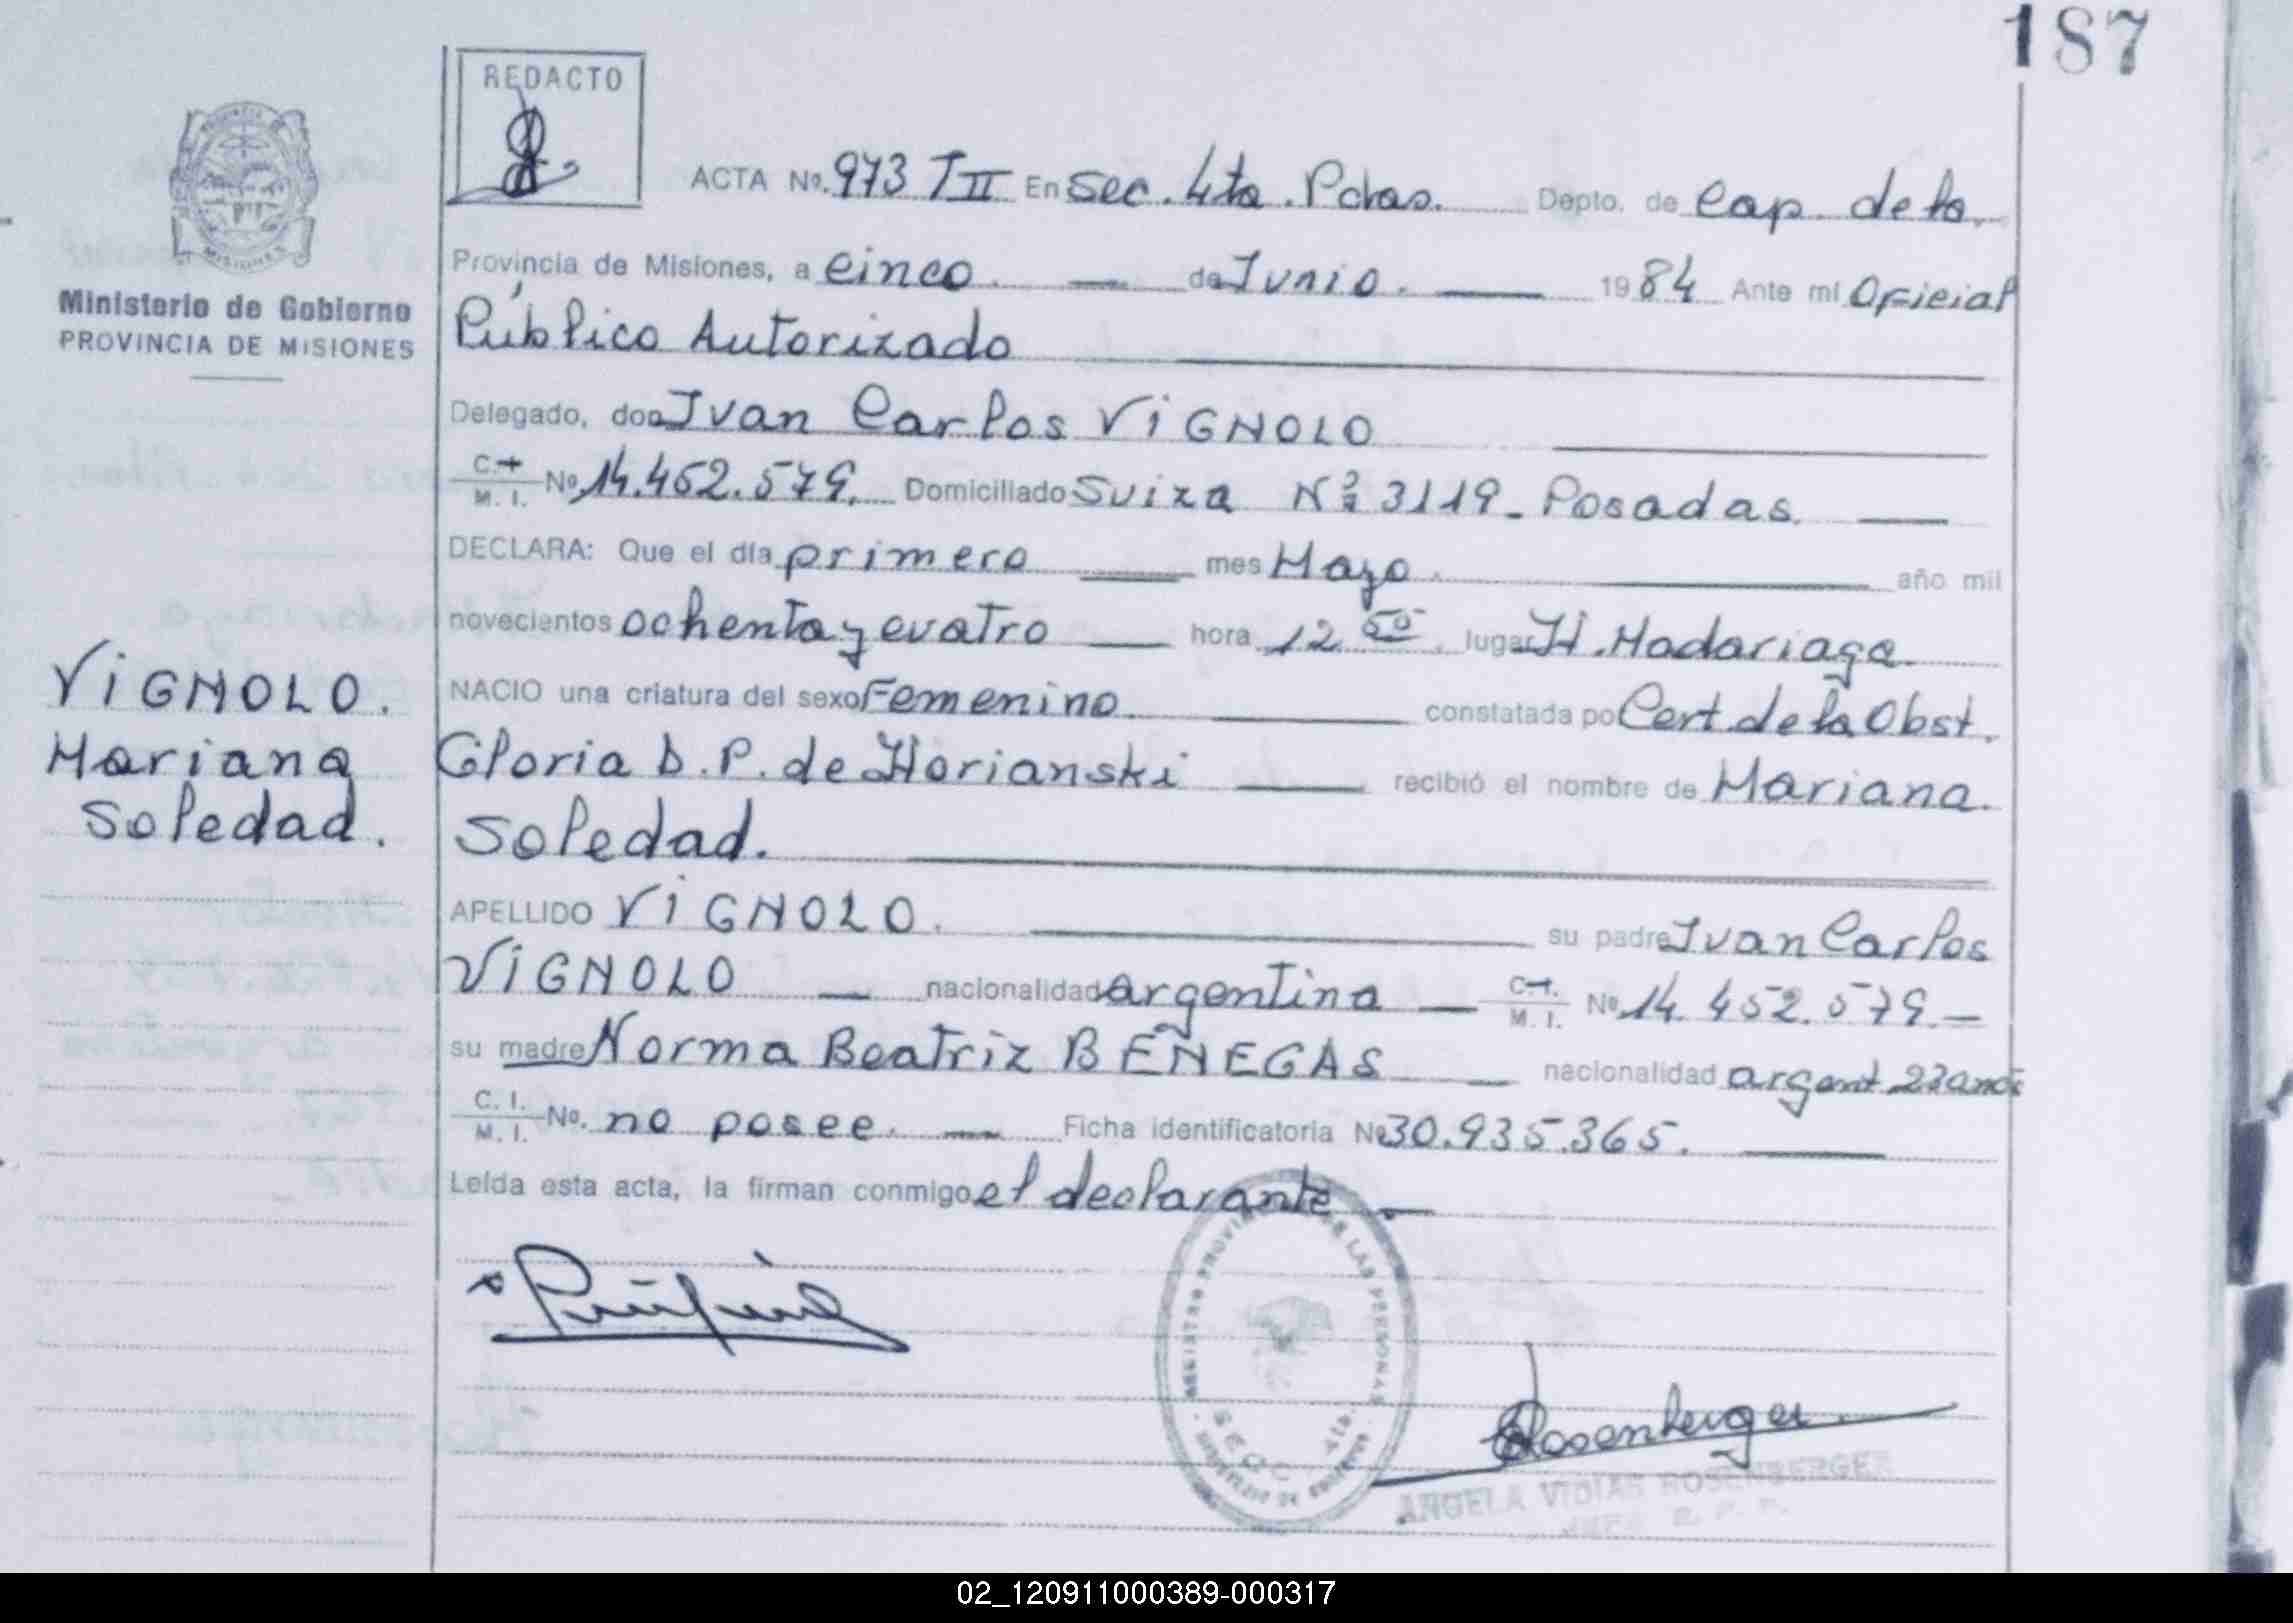 187
REDACTO
Ministerio de Gobierno
PROVINCIA DE MISIONES
ACTA No. 973 T II En Sec. 4ta. Pdas. Depto. de Cap. de la
Provincia de Misiones, a cinco de Junio. 1984 Ante mi Oficial
Público Autorizado
Delegado, don Ivan Carlos ViGNOLO
C. I. M. I. No 14.452.579. Domiciliado Suiza Nº 3119 - Posadas.
DECLARA: Que el día primero mes Mayo. año mil
novecientos ochenta y cuatro hora 12 50 lugar H. Madariaga
NACIO una criatura del sexo Femenino constatada por Cert. de la Obst.
Gloria D. P. de Horianski recibió el nombre de Mariana
Soledad.
APELLIDO ViGNOLO. su padre Ivan Carlos
ViGNOLO nacionalidad argentina C. I. M. I. No 14.452.579.
su madre Norma Beatriz BENEGAS nacionalidad argent. 22 anos
C. I. M. I. No. no posee. Ficha identificatoria No 30.935.365.
Leída esta acta, la firman conmigo el declarante
ViGNOLO.
Mariana
Soledad.
REGISTRO PROVINCIAL DE LAS PERSONAS
SECC. 4ta.
Rosenberger
ANGELA VIDIAS ROSENBERGER
02_120911000389-000317